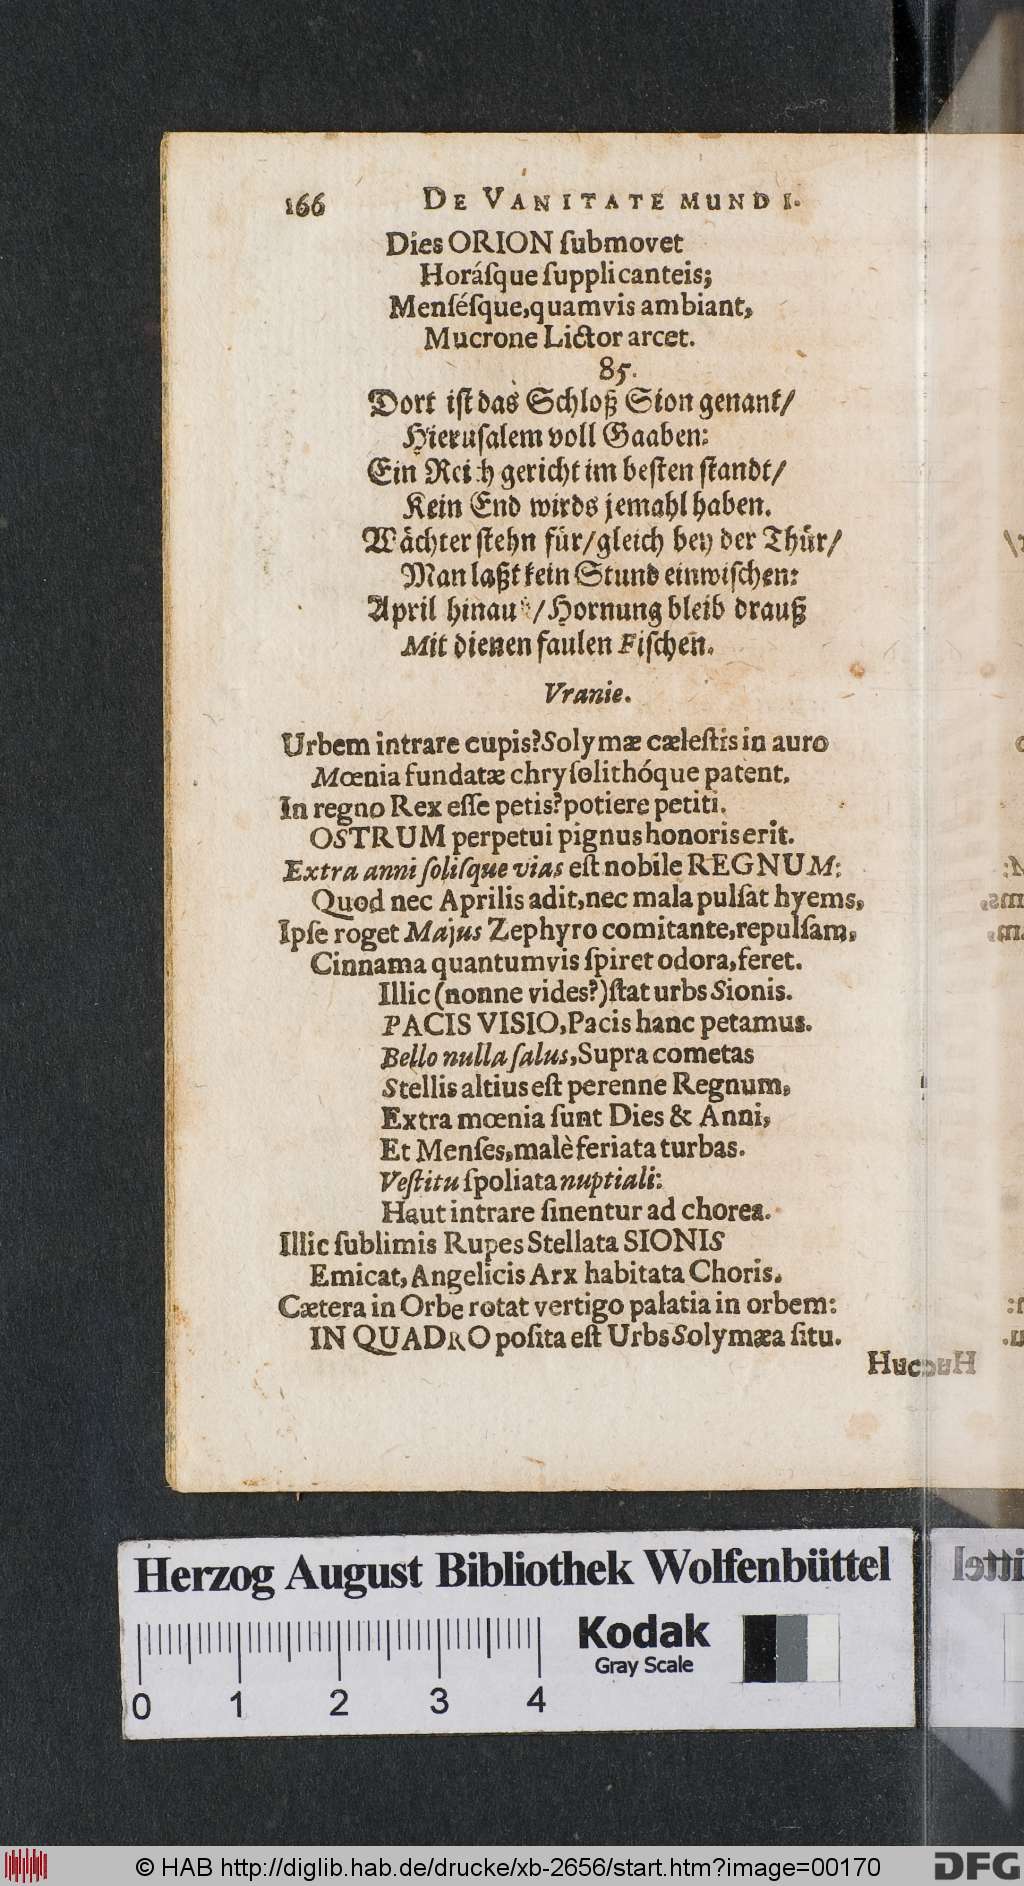 166 DE VANITATE MUNDI.
Dies ORION ſubmovet
Horáſque ſupplicanteis;
Menſéſque, quamvis ambiant,
Mucrone Lictor arcet.
85.
Dort iſt das Schloß Sion genant/
Hieruſalem voll Gaaben:
Ein Reich gericht im beſten ſtandt/
Kein End wirds jemahl haben.
Wächter ſtehn für/ gleich bey der Thür/
Man laßt kein Stund einwiſchen:
April hinauß/ Hornung bleib drauß
Mit dienen faulen Fiſchen.
Vranie.
Urbem intrare cupis? Solymæ cæleſtis in auro
Mœnia fundatæ chryſolithóque patent.
In regno Rex eſſe petis? potiere petiti.
OSTRUM perpetui pignus honoris erit.
Extra anni ſoliſque vias eſt nobile REGNUM:
Quod nec Aprilis adit, nec mala pulſat hyems,
Ipſe roget Majus Zephyro comitante, repulſam,
Cinnama quantumvis ſpiret odora, feret.
Illic (nonne vides?) ſtat urbs Sionis.
PACIS VISIO, Pacis hanc petamus.
Bello nulla ſalus, Supra cometas
Stellis altius eſt perenne Regnum,
Extra mœnia ſunt Dies & Anni,
Et Menſes, malè feriata turbas.
Veſtitu ſpoliata nuptiali:
Haut intrare ſinentur ad chorea.
Illic ſublimis Rupes Stellata SIONIS
Emicat, Angelicis Arx habitata Choris.
Cætera in Orbe rotat vertigo palatia in orbem:
IN QUADRO poſita eſt Urbs Solymæa ſitu.
Huc
Herzog August Bibliothek Wolfenbüttel
Kodak
Gray Scale
0 1 2 3 4
© HAB http://diglib.hab.de/drucke/xb-2656/start.htm?image=00170
DFG